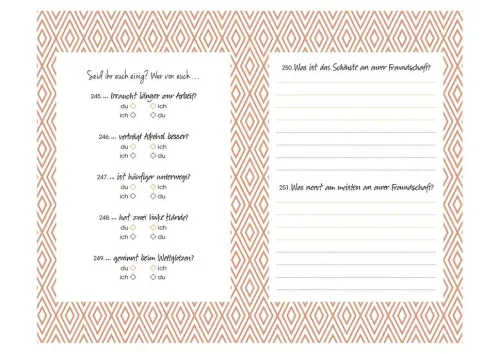 Seid ihr euch einig? Wer von euch...
245.... braucht länger zur Arbeit?
du ◇ ◇ ich
ich ◇ ◇ du
246.... verträgt Alkohol besser?
du ◇ ◇ ich
ich ◇ ◇ du
247.... ist häufiger unterwegs?
du ◇ ◇ ich
ich ◇ ◇ du
248.... hat zwei linke Hände?
du ◇ ◇ ich
ich ◇ ◇ du
249.... gewinnt beim Wettglotzen?
du ◇ ◇ ich
ich ◇ ◇ du
250. Was ist das Schönste an eurer Freundschaft?
251. Was nervt am meisten an eurer Freundschaft?